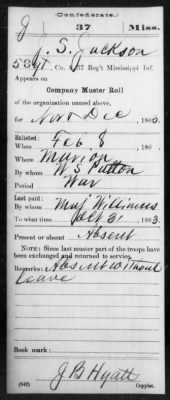 (Confederate.)
J 37 Miss.
J. S. Jackson
5 Sgt, Co. J, 37 Reg't Mississippi Inf.
Appears on
Company Muster Roll
of the organization named above,
for Nov & Dec, 1863.
Enlisted:
When Feb. 8, 186
Where Marion
By whom W S Patton
Period War
Last paid:
By whom Maj Williams
To what time Oct 31, 1863.
Present or absent Absent
NOTE: Since last muster part of the troops have
been exchanged and returned to service.
Remarks: Absent without
leave
Book mark:
J B Hyatt
(642) Copyist.